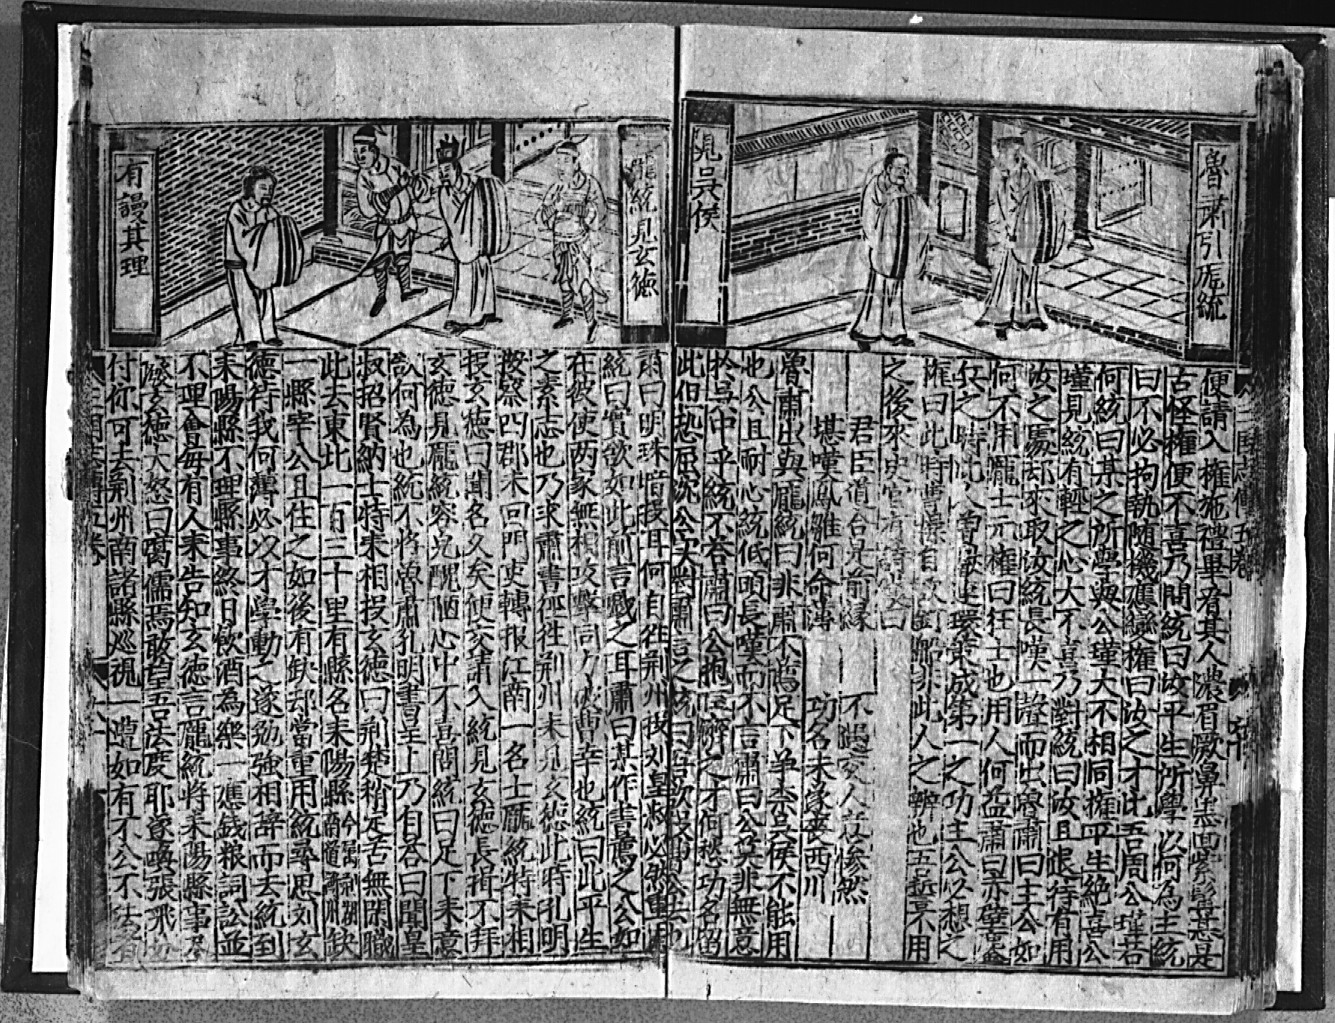 魯肅引龐統
見吳侯
便請入權施禮畢看其人濃眉厥鼻黑面紫髯甚是
古怪權便不喜乃問統曰汝平生所學以何為主統
曰不必拘執隨機應變權曰汝之才比吾周公瑾若
何統曰某之所學與公瑾大不相同權平生絕喜公
瑾見統有輕之心大不喜乃對統曰汝且退待有用
汝之處却來取汝統長嘆一聲而出魯肅曰主公如
何不用龐士元權曰狂士也用人何益肅曰赤壁鏖兵
之時此人曾獻連環策成第一之功主公必想之
權曰此時曹操自欲釘船非此人之辯也吾誓不用
之後來史官有詩嘆曰
君臣道合是前緣 不遇安人在慘然
堪嘆鳳雛何命薄 功名未遂喪西川
魯肅出與龐統曰非肅不薦足下爭柰吳侯不能用
也公且耐心統低頭長嘆而不言肅曰公莫非無意
於吳中乎統不答肅曰公抱匡濟之才何愁功名留
此但恐屈沉公實對肅言之統曰吾欲投曹公去也
肅曰明珠暗投耳何自往荊州投刘皇叔必然重用
統曰實欲如此前言戲之耳肅曰某作書薦之公如
在彼使两家無相攻擊同力破曹幸也統曰此平生
之素志也乃求肅書徑往荊州来見玄德此時孔明
按察四郡未回門吏轉报江南一名士龐統特来相
投玄德曰聞名久矣便交請入統見玄德長揖不拜
玄德見龐統容皃醜陋心中不喜問統曰足下来意
欲何為也統不將魯肅孔明書呈上乃自荅曰聞皇
叔招賢納士特来相投玄德曰荊楚稍定苦無閑職
此去東北一百三十里有縣名耒陽縣缺
一縣宰公且住之如後有缺却當重用統尋思刘玄
德待我何薄必以才學動之遂勉強相辞而去統到
耒陽縣不理縣事終日飲酒為樂一應錢粮詞訟並
不理會每有人来告知玄德言龐統將耒陽縣事尽
廢玄德大怒曰腐儒焉敢乱吾法度耶遂喚張飛
付你可去荊州南諸縣巡視一遭如有不公不法者
龐統見玄德
有謾其理